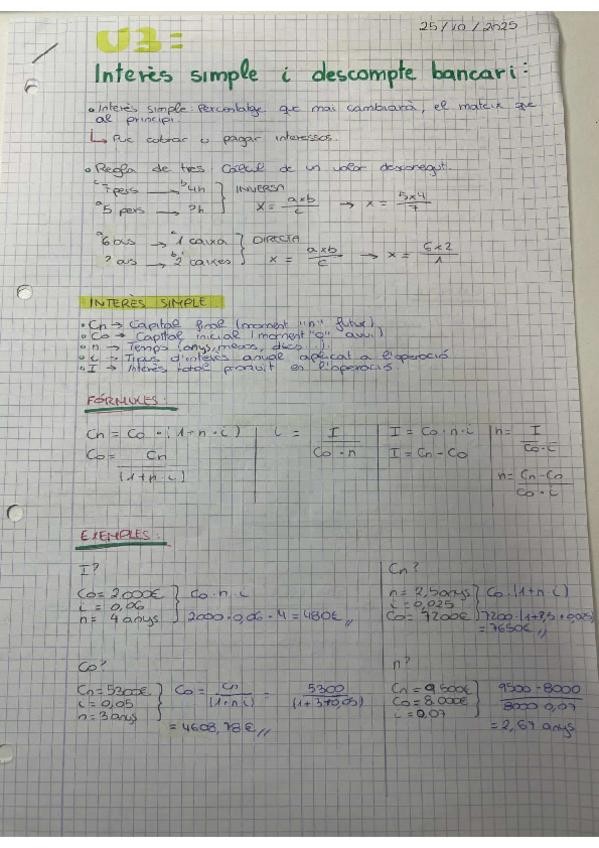 25/10/2025
U3:
Interès simple i descompte bancari:
• Interès simple: Percentatge que mai cambiarà, el mateix que
al principi.
↳ Puc cobrar o pagar interessos.
• Regla de tres: Càlcul de un valor desconegut.
c 7 pers → b 4h } INVERSA
a 5 pers → ?h x = a×b/c → x = 5×4/7
a 6 ous → c 1 caixa } DIRECTA
? ous → b 2 caixes x = a×b/c → x = 6×2/1
INTERÈS SIMPLE
• Cn → Capital final (moment "n" futur)
• Co → Capital inicial (moment "0" avui)
• n → Temps (anys, mesos, dies...)
• i → Tipus d'interès anual aplicat a l'operació
• I → Interès total produït en l'operació
FÓRMULES:
Cn = Co · (1+n·i)
Co = Cn/(1+n·i)
i = I/(Co·n)
I = Co·n·i
I = Cn-Co
n = I/(Co·i)
n = (Cn-Co)/(Co·i)
EXEMPLES:
I?
Co = 2000€ } Co·n·i
i = 0,06
n = 4 anys 2000·0,06·4 = 480€
Cn?
n = 2,5 anys } Co·(1+n·i)
i = 0,025
Co = 7200€ 7200·(1+2,5·0,025)
= 7650€
Co?
Cn = 5300€ } Co = Cn/(1+n·i) = 5300/(1+3·0,05)
i = 0,05
n = 3 anys = 4608,78€
n?
Cn = 9500€ } 9500-8000/8000·0,07
Co = 8.000€
i = 0,07 = 2,67 anys